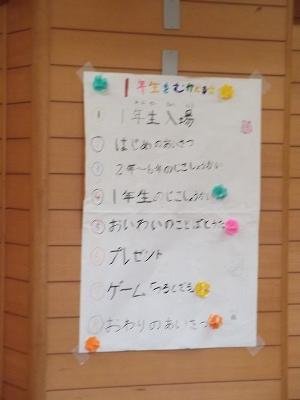 1年生をむかえる会
1年生入場
はじめのあいさつ
2年〜6年のじこしょうかい
1年生のじこしょうかい
おいわいのことばとうた
プレゼント
ゲーム
おわりのあいさつ